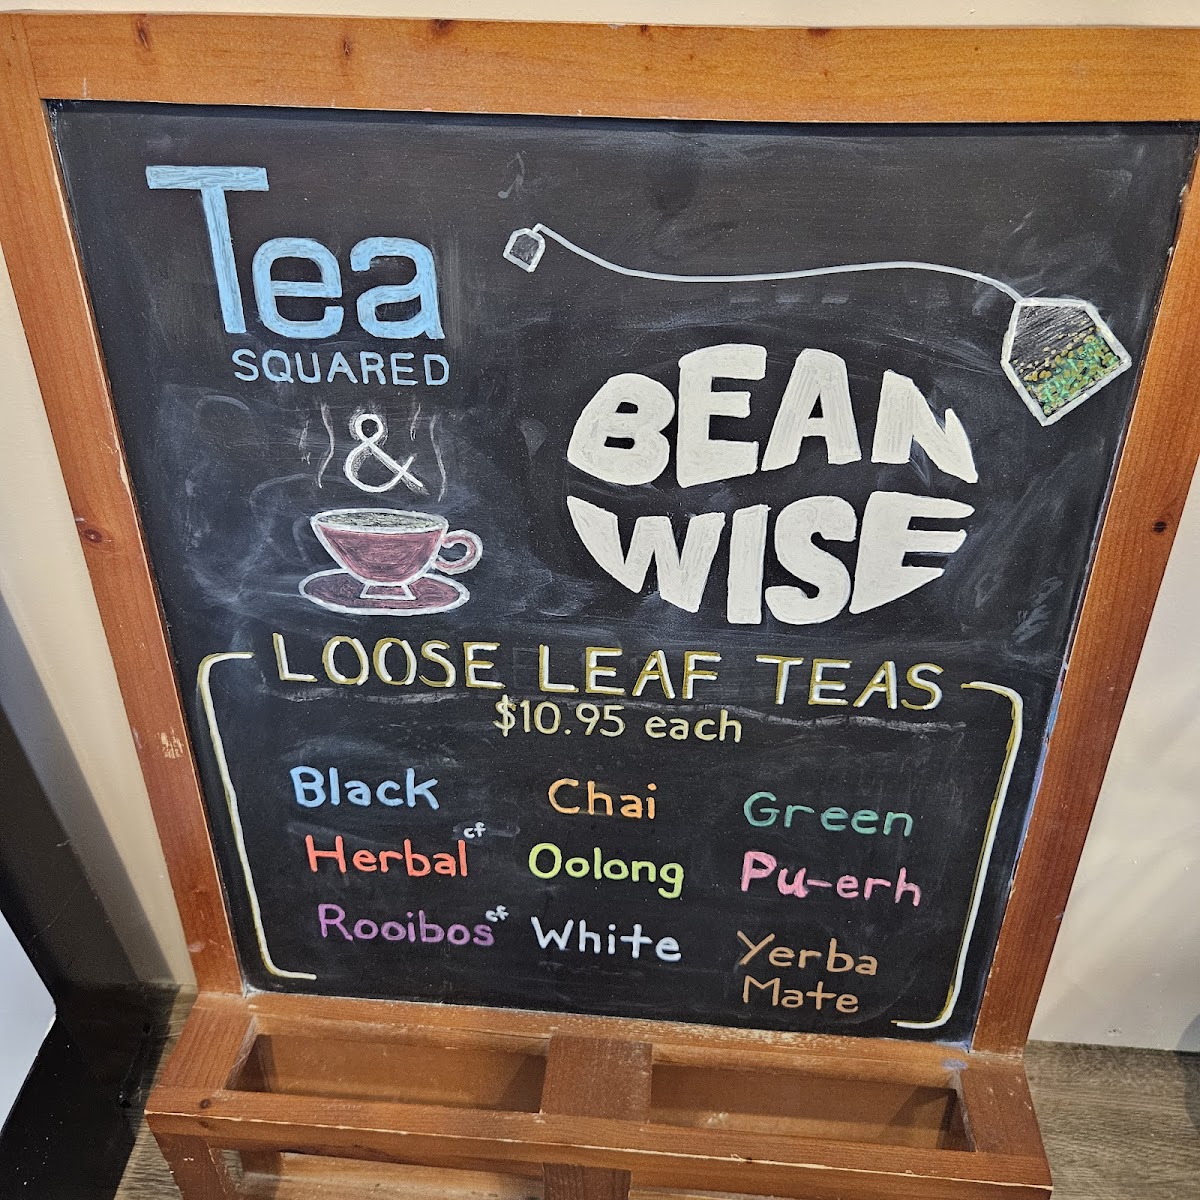 Tea
SQUARED
&
BEAN
WISE
LOOSE LEAF TEAS
$10.95 each
Black Chai Green
Herbal cf Oolong Pu-erh
Rooibos cf White Yerba
Mate